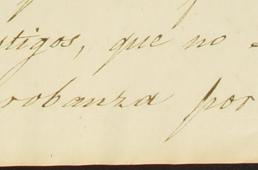 stigos, que no
robanza por